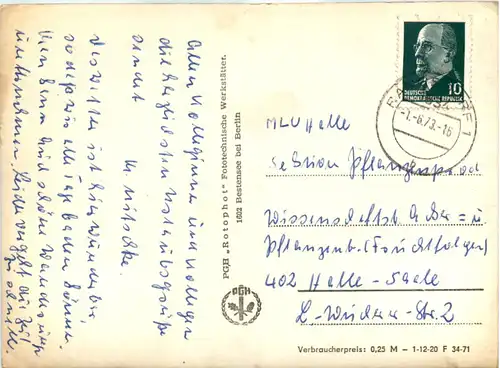 Allen Kolleginnen und Kollegen
die herzlichsten Urlaubsgrüße
sendet
Das Wetter ist hier wunderbar
so daß wir alle Tage baden können.
und schöne Wanderungen
unternehmen. Leider vergeht die Zeit
zu schnell.
PGH „Rotophot" Fototechnische Werkstätten,
1602 Bestensee bei Berlin
PGH
DEUTSCHE
DEMOKRATISCHE REPUBLIK
10
-1.-6.73.-16
MLU Halle
Sektion Pflanzenprod.
Wissenschaftsb. Acker- u.
Pflanzenb. (Fruchtfolgen)
402 Halle-Saale
L.-Wucherer-Str. 2
Verbraucherpreis: 0,25 M – 1-12-20 F 34-71